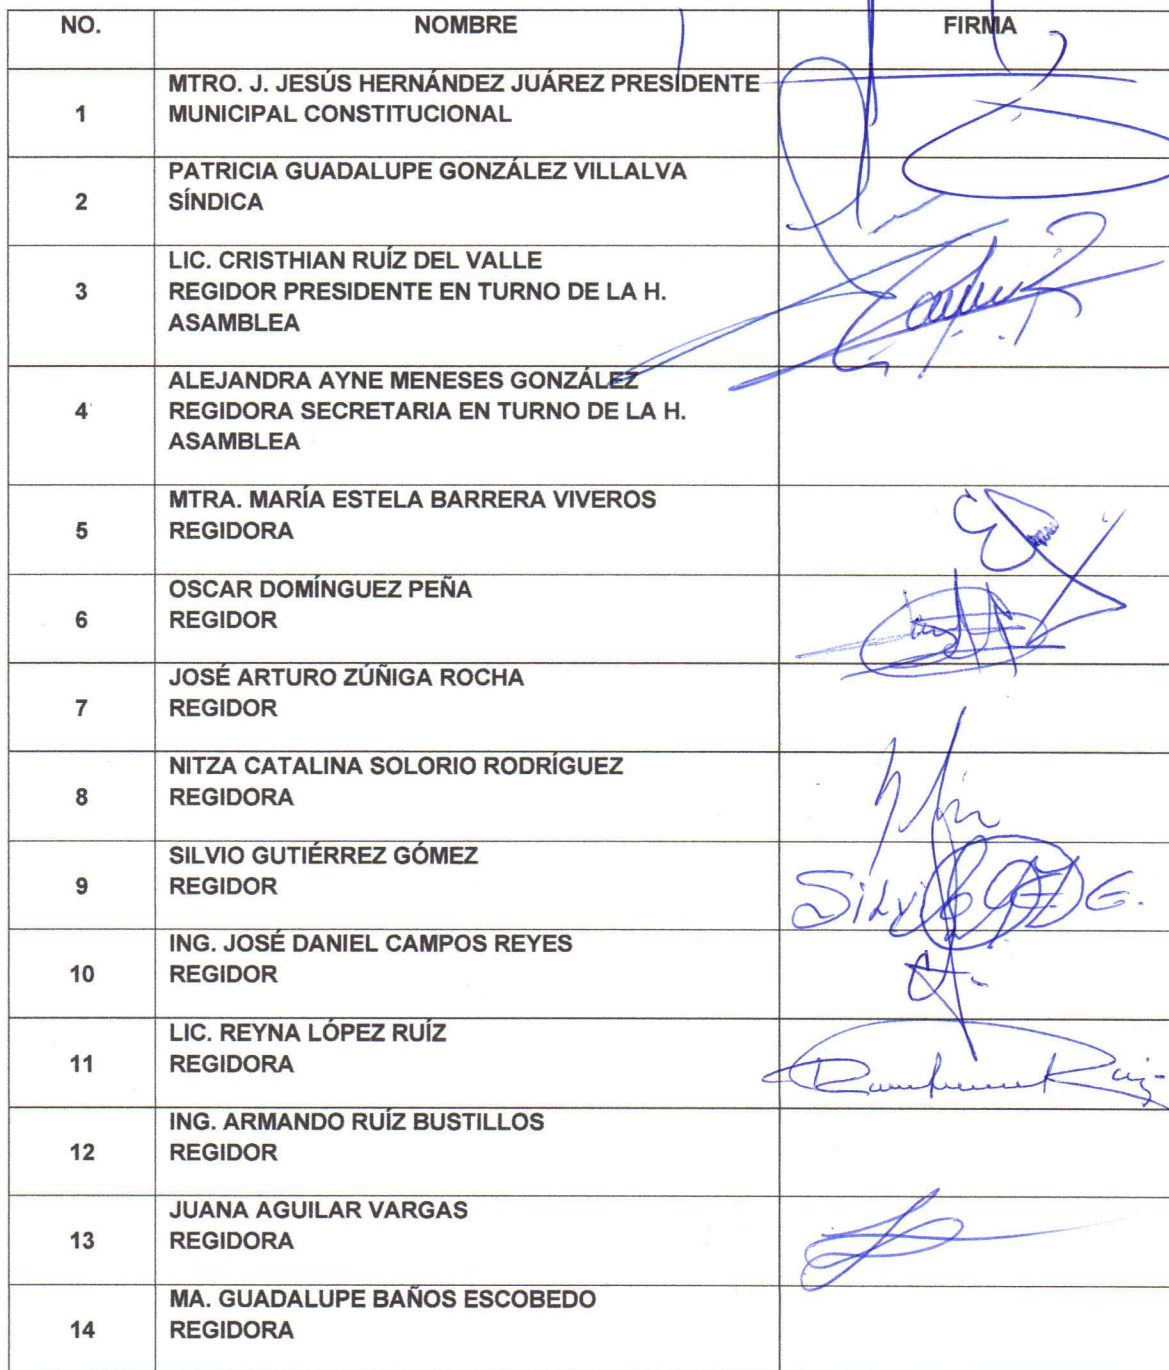 NO. NOMBRE FIRMA
MTRO. J. JESÚS HERNÁNDEZ JUÁREZ PRESIDENTE
1 MUNICIPAL CONSTITUCIONAL
PATRICIA GUADALUPE GONZÁLEZ VILLALVA
2 SÍNDICA
LIC. CRISTHIAN RUÍZ DEL VALLE
3 REGIDOR PRESIDENTE EN TURNO DE LA H.
ASAMBLEA
ALEJANDRA AYNE MENESES GONZÁLEZ
4 REGIDORA SECRETARIA EN TURNO DE LA H.
ASAMBLEA
MTRA. MARÍA ESTELA BARRERA VIVEROS
5 REGIDORA
OSCAR DOMÍNGUEZ PEÑA
6 REGIDOR
JOSÉ ARTURO ZÚÑIGA ROCHA
7 REGIDOR
NITZA CATALINA SOLORIO RODRÍGUEZ
8 REGIDORA
SILVIO GUTIÉRREZ GÓMEZ
9 REGIDOR Silvio G.
ING. JOSÉ DANIEL CAMPOS REYES
10 REGIDOR
LIC. REYNA LÓPEZ RUÍZ
11 REGIDORA
ING. ARMANDO RUÍZ BUSTILLOS
12 REGIDOR
JUANA AGUILAR VARGAS
13 REGIDORA
MA. GUADALUPE BAÑOS ESCOBEDO
14 REGIDORA